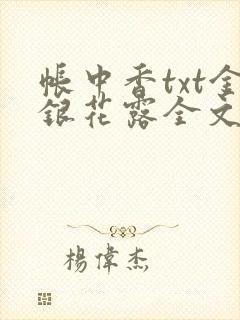 帳中香txt金
銀花露全文
楊偉杰